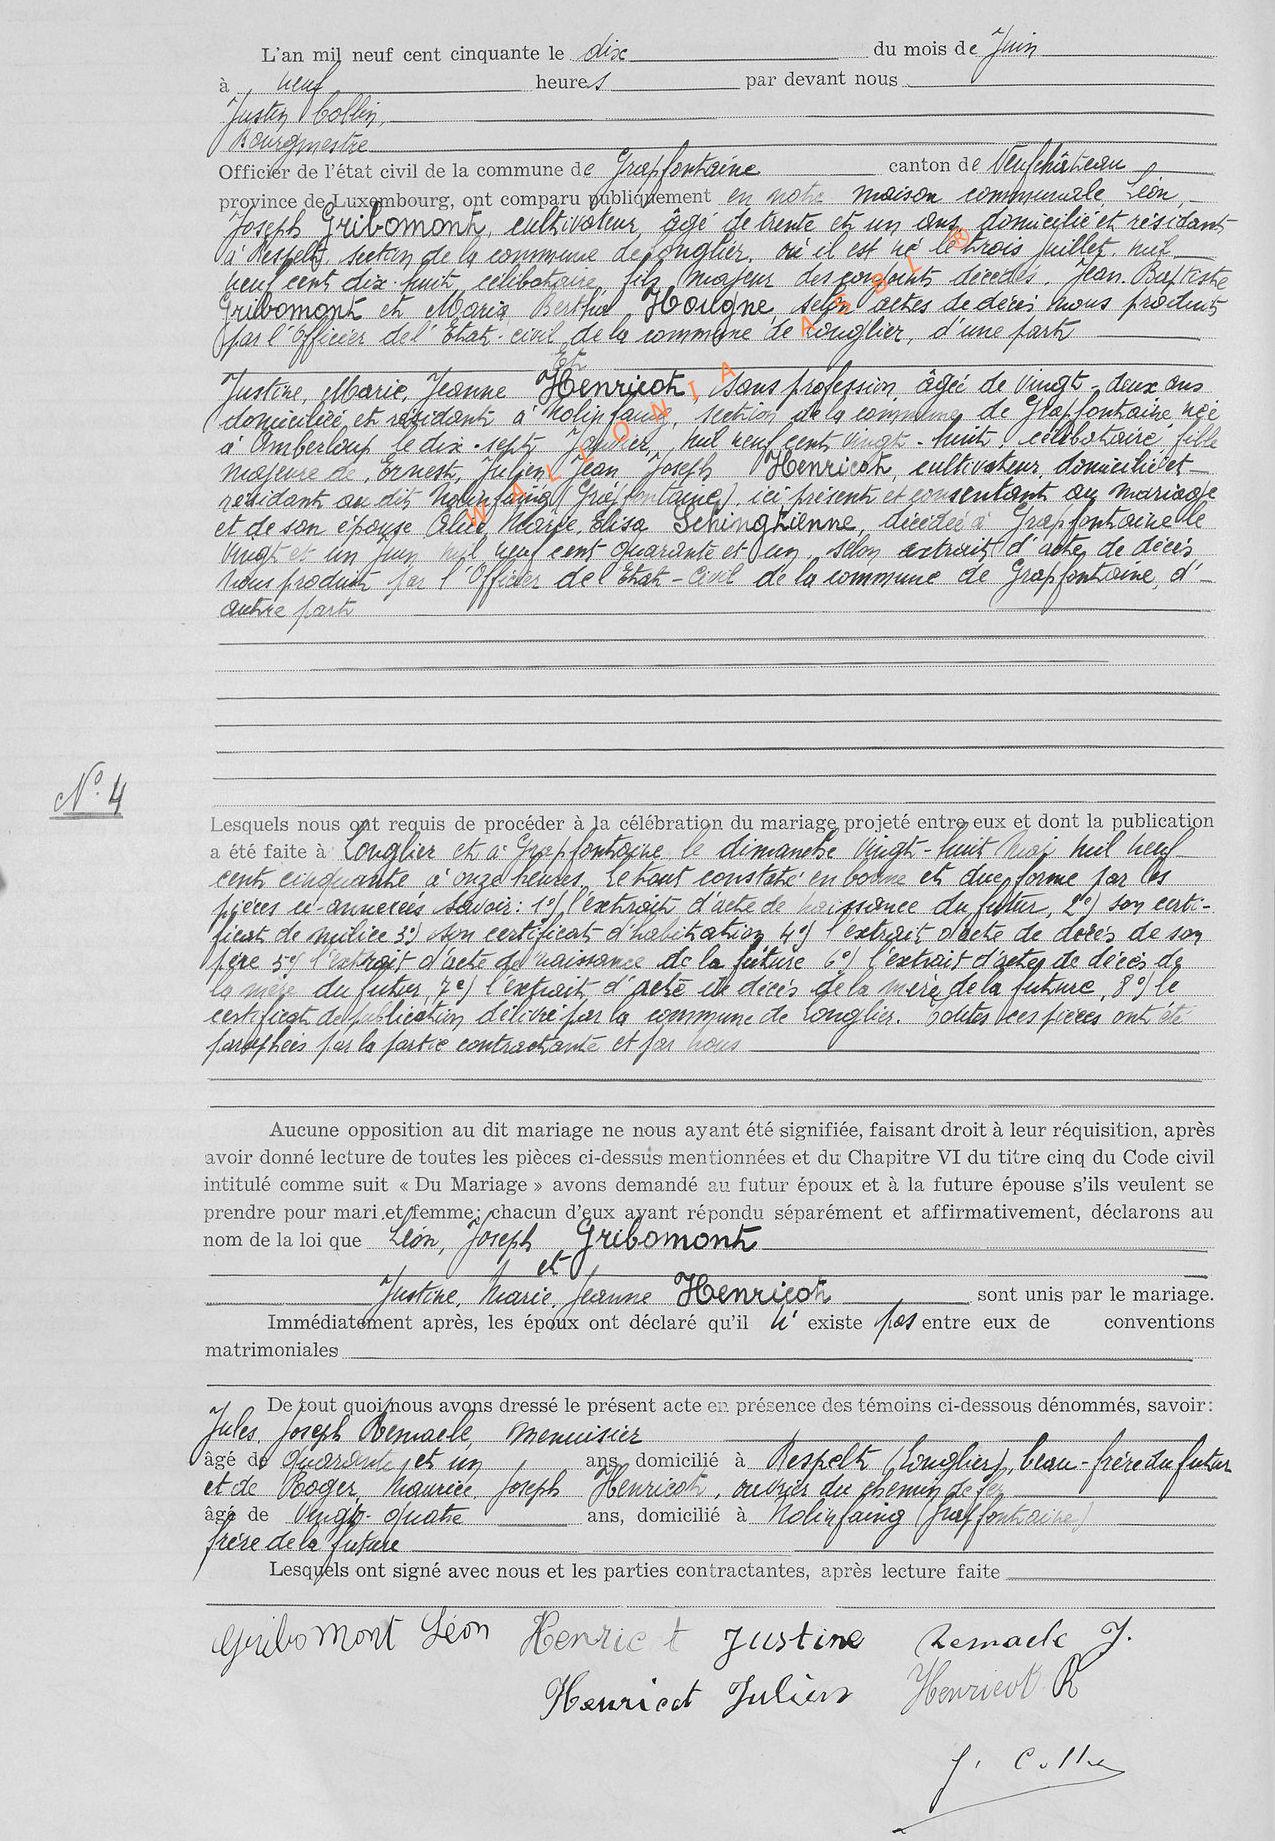 L'an mil neuf cent cinquante le dix du mois de Juin
à neuf heures par devant nous
Justin Collin,
Bourgmestre
Officier de l'état civil de la commune de Grapfontaine canton de Neufchâteau
province de Luxembourg, ont comparu publiquement en notre maison communale Léon,
Joseph Gribomont, cultivateur, âgé de trente et un ans domicilié et résidant
à Respelt, section de la commune de Longlier, où il est né le trois juillet mil
neuf cent dix-huit, célibataire, fils majeur des conjoints décédés. Jean-Baptiste
Gribomont et Maria Bertha Hougne, selon actes de décès nous produits
par l'Officier de l'Etat-civil de la commune de Longlier, d'une part
Et
Justine, Marie, Jeanne Henricot, sans profession, âgée de vingt-deux ans
domiciliée et résidant à Nolinfaing, section de la commune de Grapfontaine née
à Amberloup le dix-sept Janvier, mil neuf cent vingt-huit, célibataire, fille
majeure de, Ernest, Julien, Jean, Joseph Henricot, cultivateur, domicilié et
résidant au dit Nolinfaing (Grapfontaine) ici présent et consentant au mariage
et de son épouse Marie, Elisa Schingtienne, décédée à Grapfontaine le
vingt et un Juin mil neuf cent quarante et un, selon extrait d'actes de décès
nous produit par l'Officier de l'Etat-Civil de la commune de Grapfontaine, d'-
autre part
N° 4
Lesquels nous ont requis de procéder à la célébration du mariage projeté entre eux et dont la publication
a été faite à Longlier et à Grapfontaine le dimanche vingt-huit Mai mil neuf
cent cinquante à onze heures. Le tout constaté en bonne et due forme par les
pièces ci-annexées savoir: 1°) l'extrait d'acte de naissance du futur, 2°) son certi-
ficat de milice 3°) son certificat d'habitation 4°) l'extrait d'acte de décès de son
père 5°) l'extrait d'acte de naissance de la future 6°) l'extrait d'actes de décès de
la mère du futur, 7°) l'extrait d'acte de décès de la mère de la future, 8°) le
certificat de publication délivré par la commune de Longlier. Toutes ces pièces ont été
paraphées par la partie contractante et par nous
Aucune opposition au dit mariage ne nous ayant été signifiée, faisant droit à leur réquisition, après
avoir donné lecture de toutes les pièces ci-dessus mentionnées et du Chapitre VI du titre cinq du Code civil
intitulé comme suit « Du Mariage » avons demandé au futur époux et à la future épouse s'ils veulent se
prendre pour mari et femme; chacun d'eux ayant répondu séparément et affirmativement, déclarons au
nom de la loi que Léon, Joseph Gribomont
et
Justine, Marie, Jeanne Henricot sont unis par le mariage.
Immédiatement après, les époux ont déclaré qu'il n'existe pas entre eux de conventions
matrimoniales
De tout quoi nous avons dressé le présent acte en présence des témoins ci-dessous dénommés, savoir:
Jules, Joseph Remacle, menuisier
âgé de quarante et un ans, domicilié à Respelt (Longlier), beau-frère du futur
et de Roger, Maurice, Joseph Henricot, ouvrier du chemin de fer
âgé de vingt-quatre ans, domicilié à Nolinfaing (Grapfontaine)
frère de la future
Lesquels ont signé avec nous et les parties contractantes, après lecture faite
Gribomont Léon Henricot Justine Remacle J.
Henricot Julien Henricot R
J. Collin
WALLONIA ASBL ®